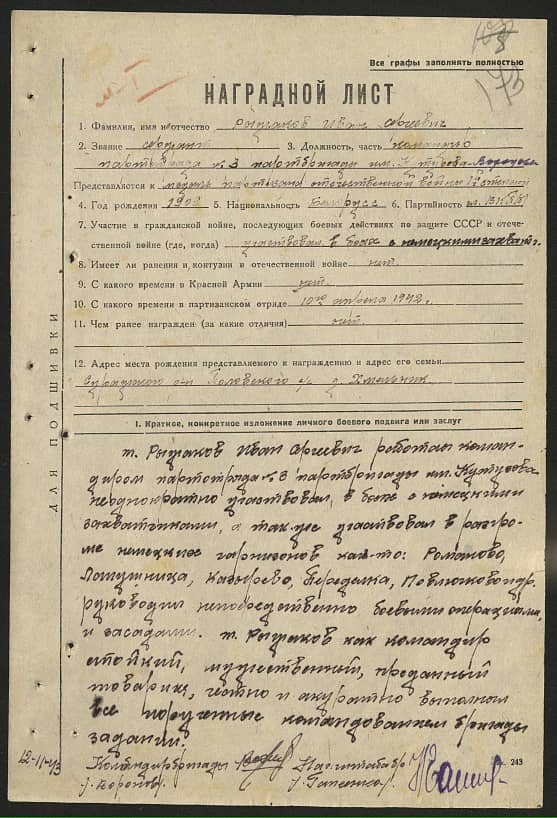 Все графы заполнять полностью
173
НАГРАДНОЙ ЛИСТ
1. Фамилия, имя и отчество Рыжаков Иван
2. Звание сержант 3. Должность, часть командир
партотряда № 3 партбригады им. Кутузова Воронова
Представляется к медаль партизана отечественной войны
4. Год рождения 1902 5. Национальность 6. Партийность чл. ВКП(б)
7. Участие в гражданской войне, последующих боевых действиях по защите СССР и отече-
ственной войне (где, когда) участвовал в боях с немецкими захват.
8. Имеет ли ранения и контузии в отечественной войне нет.
9. С какого времени в Красной Армии нет.
10. С какого времени в партизанском отряде апреля 1942 г.
11. Чем ранее награжден (за какие отличия) нет.
12. Адрес места рождения представляемого к награждению и адрес его семьи
д. Хмельник
ДЛЯ ПОДШИВКИ
I. Краткое, конкретное изложение личного боевого подвига или заслуг
т. Рыжаков Иван работая коман-
диром партотряда № 3 партбригады им. Кутузова
неоднократно участвовал в боях с немецкими
захватчиками, а также участвовал в разгро-
ме немецких гарнизонов как-то: Романово,
руководил непосредственно боевыми операциями,
и засадами. т. Рыжаков как командир
стойкий, мужественный, преданный
товарищ, честно и акуратно выполнял
все порученные командованием бригады
задания.
12-11-43
Командир бригады Нач. штаба бр.
/Воронов/ /Гапеенко/
243